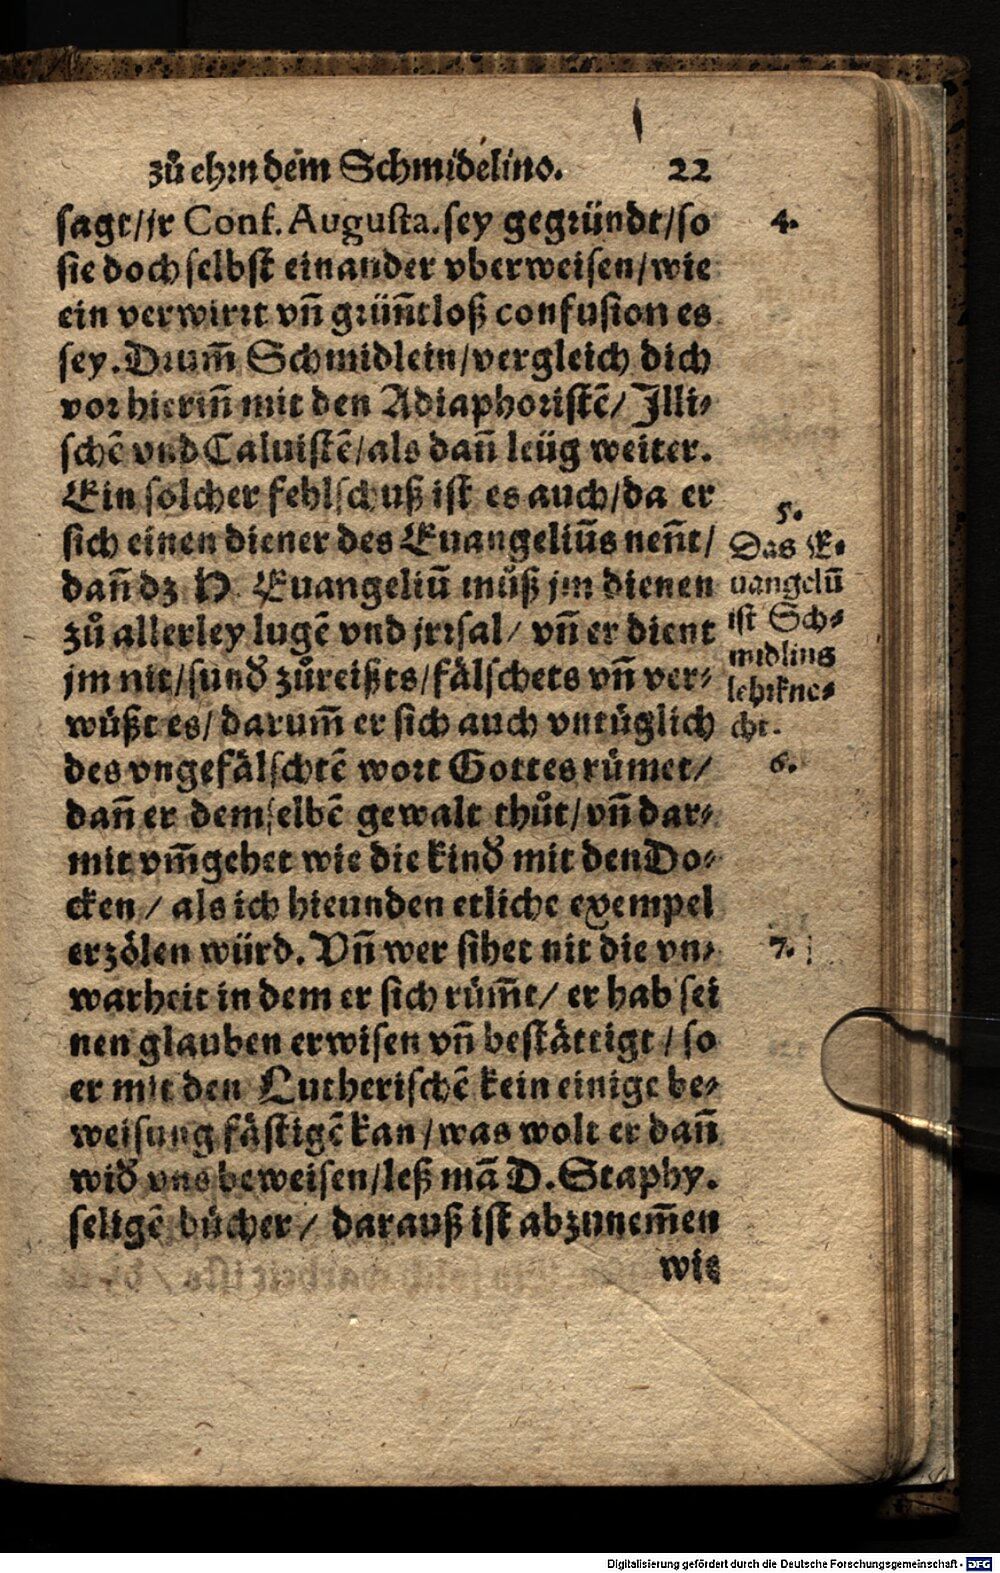 zů ehrn dem Schmidelino. 22
sagt/jr Conf. Augusta. sey gegründt/so
4.
sie doch selbst einander vberweisen/wie
ein verwirrt vn̄ grün̄tloß confusion es
sey. Drum̄ Schmidlein/vergleich dich
vor hierin̄ mit den Adiaphoristē/ Illi-
schē vnd Caluistē/als dan̄ leüg weiter.
Ein solcher fehlschuß ist es auch/da er
sich einen diener des Euangeliūs nen̄t/
dan̄ dz H. Euangeliū můß jm dienen
zů allerley lugē vnd jrrsal/ vn̄ er dient
jm nit/sund zůreißts/fälschets vn̄ ver-
wüßt es/ darum̄ er sich auch vntüglich
5.
Das E-
uangeliū
ist Sch-
midlins
lehrkne-
cht.
des vngefälschtē wort Gottes rümet/
6.
dan̄ er demselbē gewalt thůt/vn̄ dar-
mit vm̄gehet wie die kind mit den Do-
cken/ als ich hieunden etliche exempel
erzölen würd. Vn̄ wer sihet nit die vn-
7.
warheit in dem er sich rüm̄t/ er hab sei
nen glauben erwisen vn̄ bestättigt/ so
er mit den Lutherischē kein einige be-
weisung fästigē kan/was wolt er dan̄
wid vns beweisen/leß mā D. Staphy.
seligē bücher/ darauß ist abzunem̄en
wie
Digitalisierung gefördert durch die Deutsche Forschungsgemeinschaft - DFG